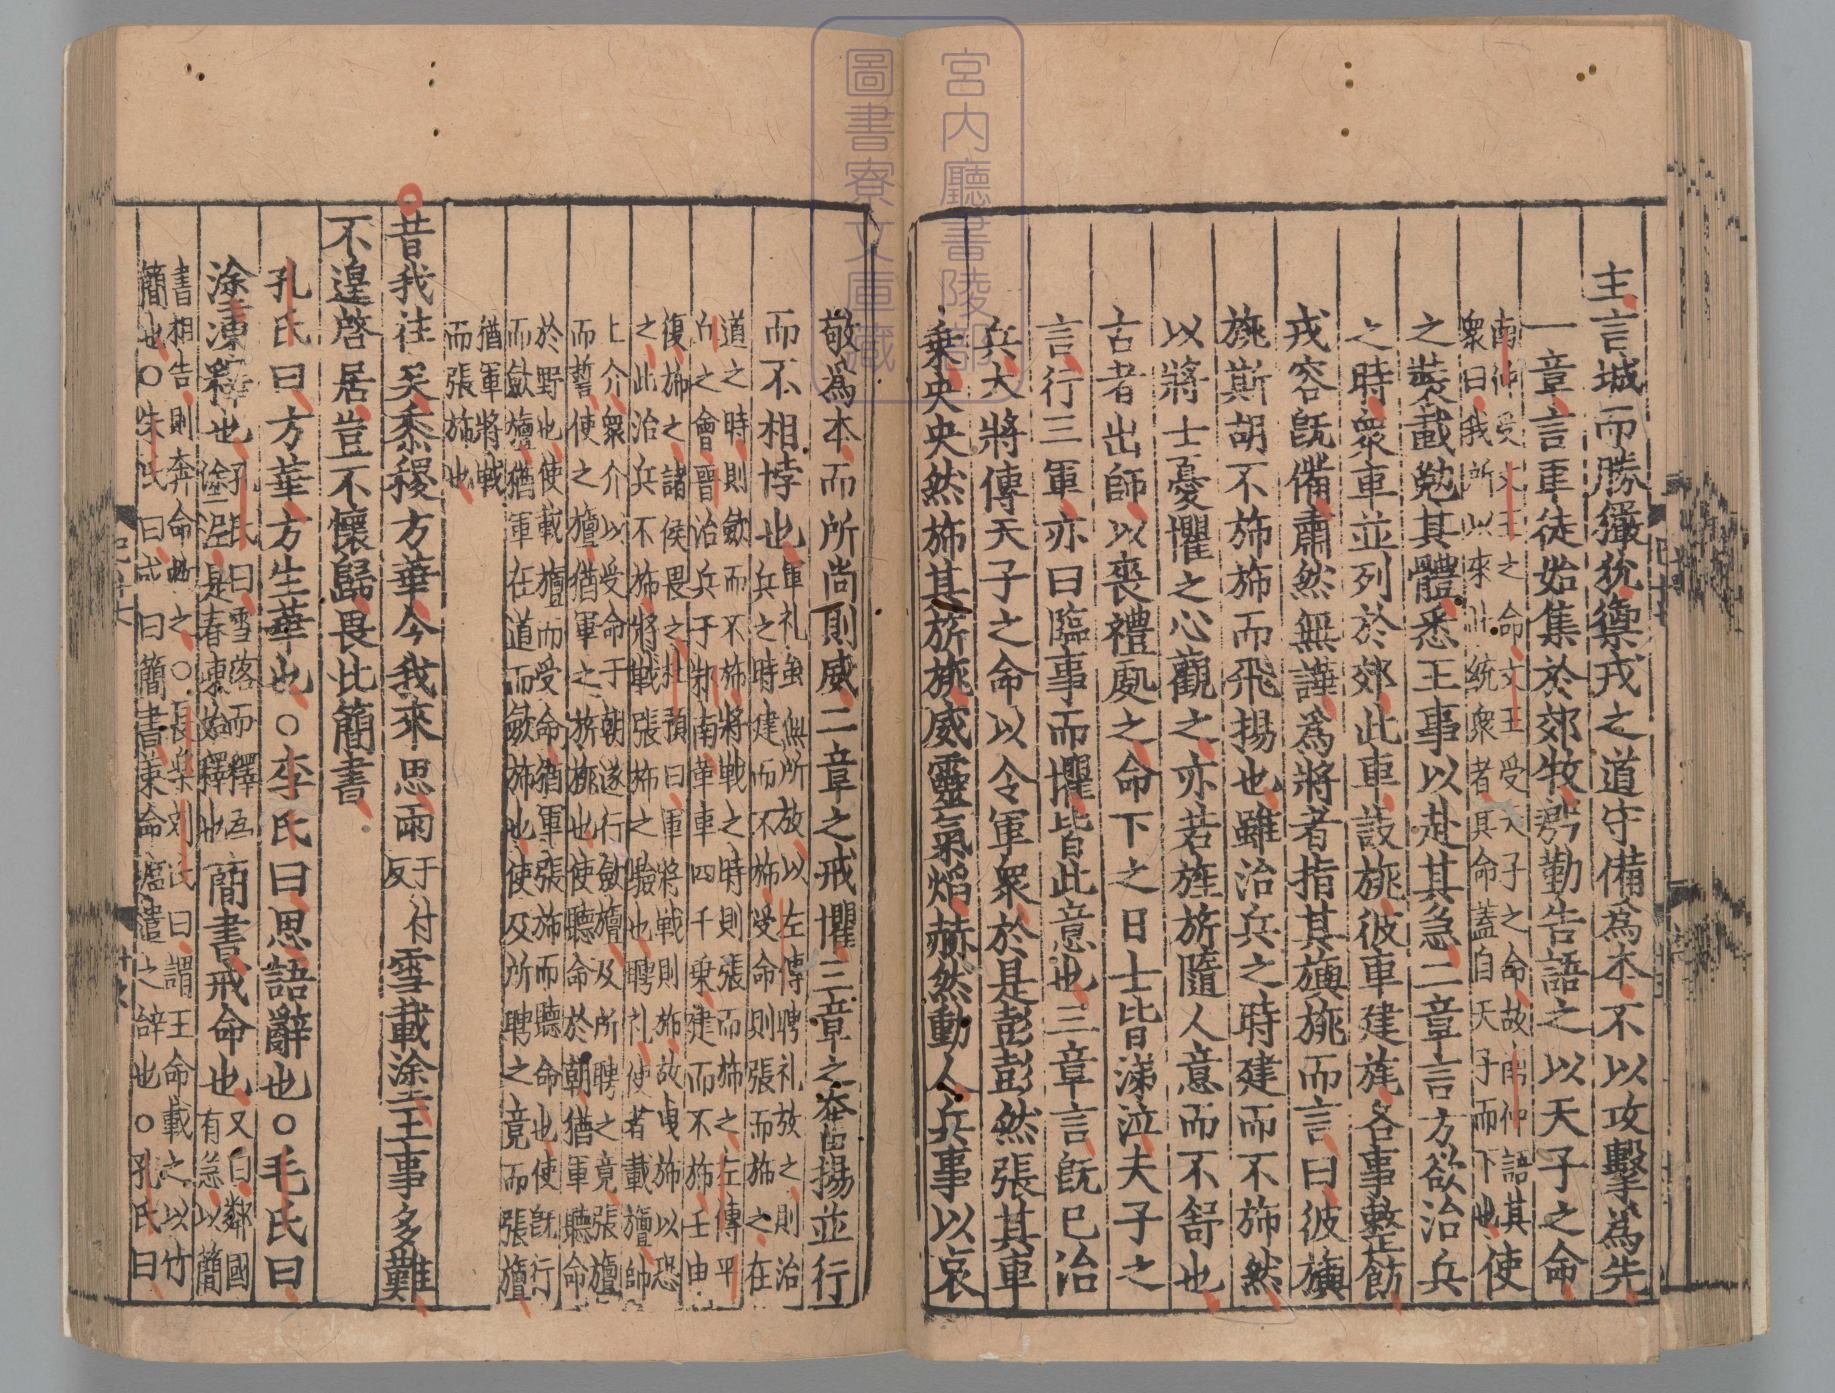 主言城而勝玁狁禦戎之道守備為本不以攻擊為先
一章言車徒始集於郊牧將勤告語之以天子之命
南仲受文王之命文王受天子之命故南仲語其
衆曰我所以來此統衆者其命蓋自天子而下也使
之裝載勉其體悉王事以赴其急二章言方欲治兵
之時衆車並列於郊此車設旐彼車建旄各事整飭
戎容旣備肅然無譁為將者指其旟旐而言曰彼旟
旐斯胡不旆旆而飛揚也雖治兵之時建而不旆然
以將士憂懼之心觀之亦若旌旂隨人意而不舒也
古者出師以喪禮處之命下之日士皆涕泣夫子之
言行三軍亦曰臨事而懼皆此意也三章言旣巳治
兵大將傳天子之命以令軍衆於是彭彭然張其車
乗央央然旆其旂旐威靈氣焰赫然動人兵事以哀
敬為本而所尚則威二章之戒懼三章之奮揚並行
而不相悖也
軍礼虽無所放以左傳聘礼放之則治
兵之時建而不旆受命則張而旆之在
道之時則斂而不旆將戰之時則張而旆之左傳平
丘之會晉治兵于邾南革車四千乗建而不旆壬申
復旆之諸侯畏之杜預曰軍將戰則旆故曳旆以恐
之此治兵不旆將戰張旆之驗也聘礼使者載旜帥
上介衆介以受命于朝遂行斂旜及所聘之竟張旜
而誓使之旜猶軍之旂旐也使聽命於朝猶軍聽命
於野也使載旜而受命猶軍張旆而聽命也使旣行
而斂旜猶軍在道而斂旆也使及所聘之竟而張旜
猶軍將戰
而張旆也
昔我往矣黍稷方華今我來思雨
于付
反
雪載涂王事多難
不遑啓居豈不懷歸畏此簡書
孔氏曰方華方生華也○李氏曰思語辭也○毛氏曰
涂凍釋也
孔氏曰雪落而釋為
塗泥是春凍始釋也
簡書戒命也
又曰鄰國
有急以簡
書相告則奔命救之○長樂劉氏曰謂王命載之以竹
簡也○朱氏曰或曰簡書策命臨遣之辝也○孔氏曰
宮内廳書陵部
圖書寮文庫藏